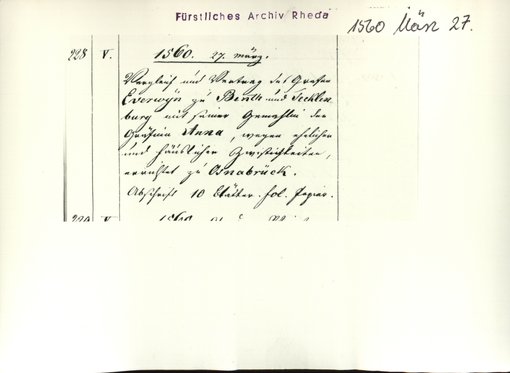 Fürstliches Archiv Rheda
1560 März 27.
228 V. 1560. 27. März.
Vergleich und Vertrag des Grafen
Everwÿn zu Benth. und Tecklen-
burg mit seiner Gemahlin der
Gräfinn Anna, wegen ehelicher
und häuslicher Zwistigkeiten,
errichtet zu Osnabrück.
Abschrift 10 Blätter. fol. Papier.
229 V. 1560